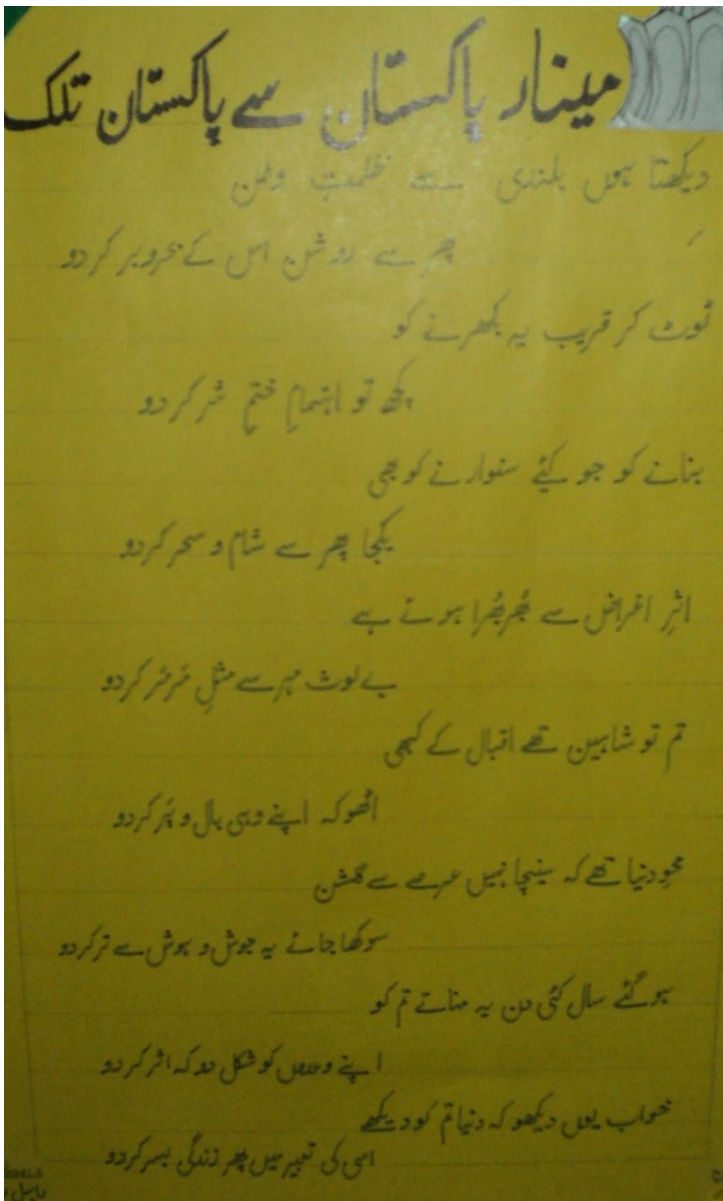 مینار پاکستان سے پاکستان تلک
دیکھتا ہوں بلندی سے ظلمتِ وطن
پھر سے روشن اس کے بحر و بر کر دو
ٹوٹ کر قریب یہ بکھرنے کو
کچھ تو اہتمامِ ختمِ شر کر دو
بنانے کو جو کیٔے سنوارنے کو بھی
یکجا پھر سے شام و سحر کر دو
اثرِ اغراض سے بُھربُھرا ہوتے ہے
بے لوث مہر سے مثلِ مَرمَر کر دو
تم تو شاہین تھے اقبال کے کبھی
اٹھو کہ اپنے وہی بال و پَر کر دو
محوِ دنیا تھے کہ سینچا نہیں عرصے سے گلشن
سوکھا جائے یہ جوش و ہوش سے تر کر دو
ہو گئے سال کئی دن یہ مناتے تم کو
اپنے وعدوں کو شکل دو کہ اثر کر دو
خواب یوں دیکھو کہ دنیا تم کو دیکھے
اسی کی تعبیر میں پھر زندگی بسر کر دو